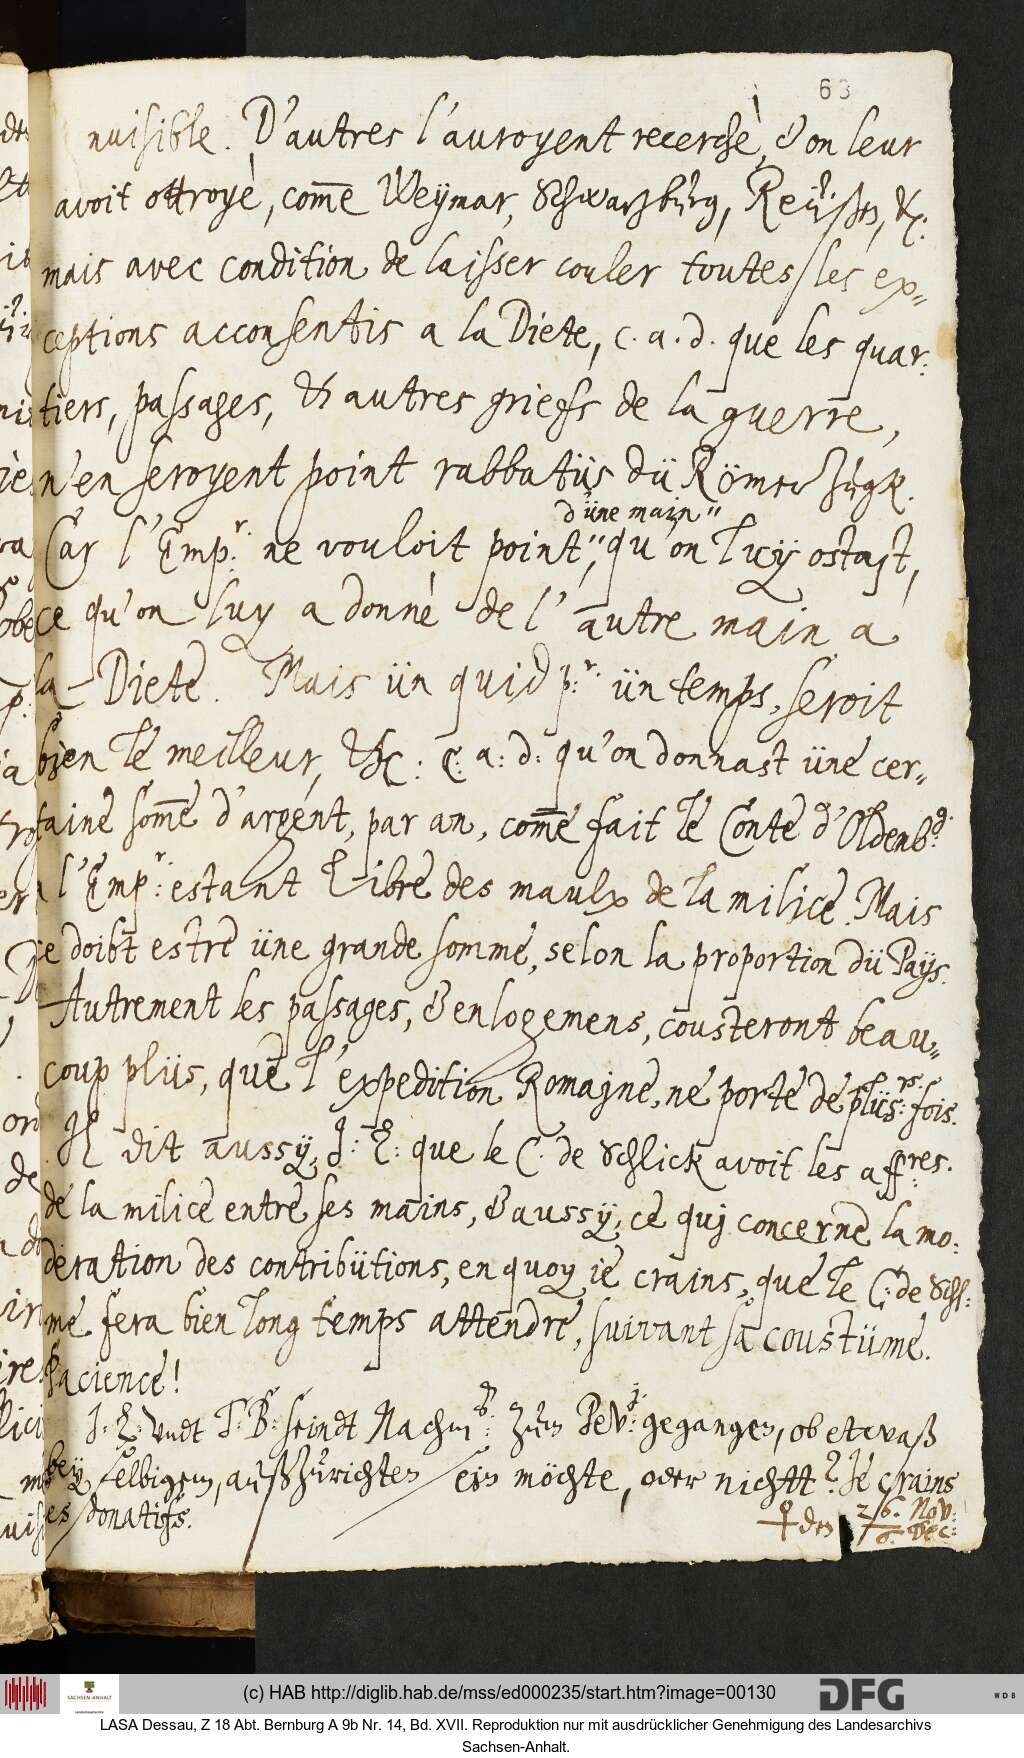 63
nuisible. D'autres l'auroyent recerchè, & on leur
avoit ottroyè, com̄e Weymar, Schwartzburg, Reüßen, &c:
mais avec condition de laisser couler toutes les ex-
ceptions acconsentis a la Diete, c. a. d. que les quar-
tiers, passages, et autres griefs de la guerre,
n'en seroyent point rabbatüs dü Römer Zugk.
d'üne main"
Car l'Emp:r ne vouloit point," qu'on luy ostast,
ce qu'on luy a donnè de l'autre main a
la Diete. Mais ün quid p:r ün temps, seroit
bien le meilleur, etc: c: a: d: qu'on donnast üne cer-
taine som̄e d'argent, par an, com̄e fait le Conte d'Oldenb:g
a l'Emp:r estant libre des maulx de la milice. Mais
ce doibt estre üne grande somme, selon la proportion dü Païs.
Autrement les passages, & enlogemens, cousteront beau-
coup plüs, que l'expedition Romajne, ne porte de plüs:rs fois.
Il dit aussy, J: L: que le C. de Schlick avoit les aff:res.
de la milice entre ses mains, & aussy, ce quj concerne la mo-
deration des contribütions, en quoy je crains, que le C: de Schl:
me fera bien long temps attendre, suivant sa coustüme.
Pacience!
J: L: vndt T: B: seindt Nachm: zum gegangen, ob etwaß
bey selbigem, außzurichten sein möchte, oder nichtt? Je crains
les donatifs.
♀ den 26. Nov:
6. Dec:
(c) HAB http://diglib.hab.de/mss/ed000235/start.htm?image=00130
SACHSEN-ANHALT
DFG
WDB
LASA Dessau, Z 18 Abt. Bernburg A 9b Nr. 14, Bd. XVII. Reproduktion nur mit ausdrücklicher Genehmigung des Landesarchivs
Sachsen-Anhalt.